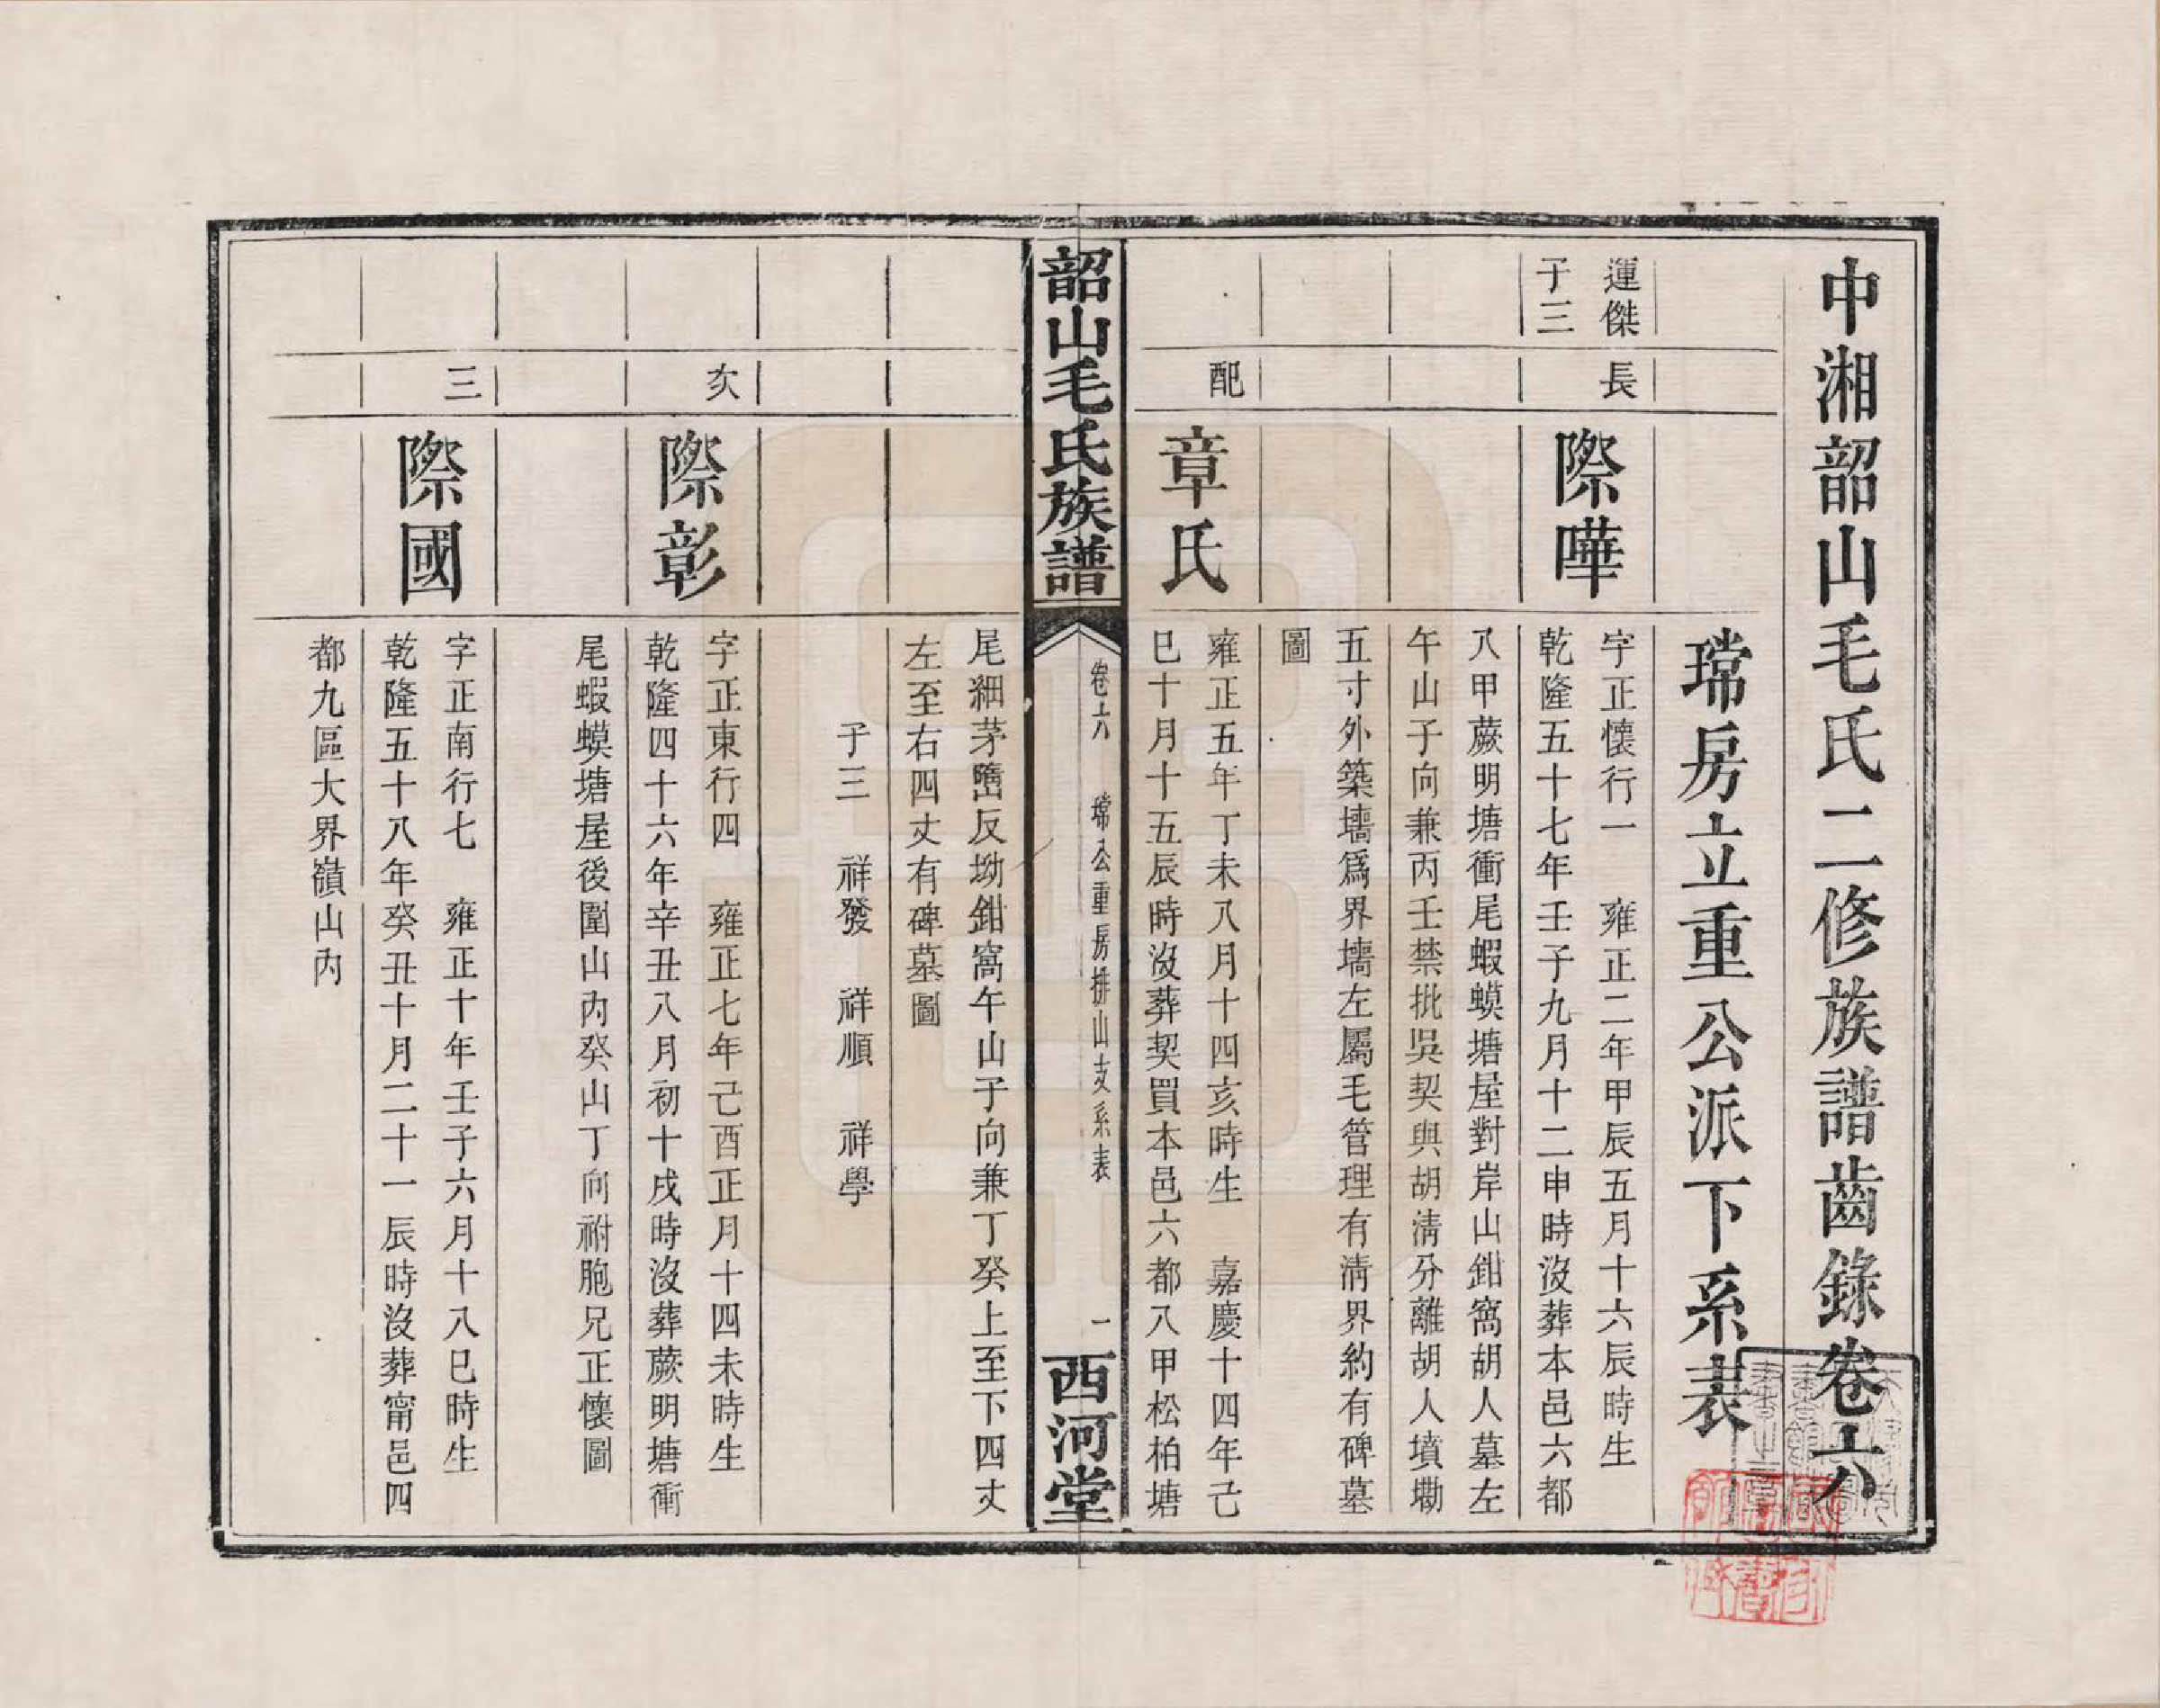 中湘韶山毛氏二修族譜齒錄卷六
瑺房立重公派下系表
運傑
子三
長
際嘩
字正懷行一　雍正二年甲辰五月十六辰時生
乾隆五十七年壬子九月十二申時沒葬本邑六都
八甲蕨明塘衝尾蝦蟆塘屋對岸山鉗窩胡人墓左
午山子向兼丙壬禁批吳契與胡清分離胡人墳墈
五寸外築墻爲界墻左屬毛管理有清界約有碑墓
圖
配
章氏
雍正五年丁未八月十四亥時生　嘉慶十四年己
巳十月十五辰時沒葬契買本邑六都八甲松柏塘
韶山毛氏族譜
卷六　瑺公重房排山支系表
一
西河堂
尾細茅反坳鉗窩午山子向兼丁癸上至下四丈
左至右四丈有碑墓圖
子三　祥發　祥順　祥學
次
際彰
字正東行四　雍正七年己酉正月十四未時生
乾隆四十六年辛丑八月初十戌時沒葬蕨明塘衝
尾蝦蟆塘屋後圍山內癸山丁向祔胞兄正懷圖
三
際國
字正南行七　雍正十年壬子六月十八巳時生
乾隆五十八年癸丑十月二十一辰時沒葬甯邑四
都九區大界嶺山內